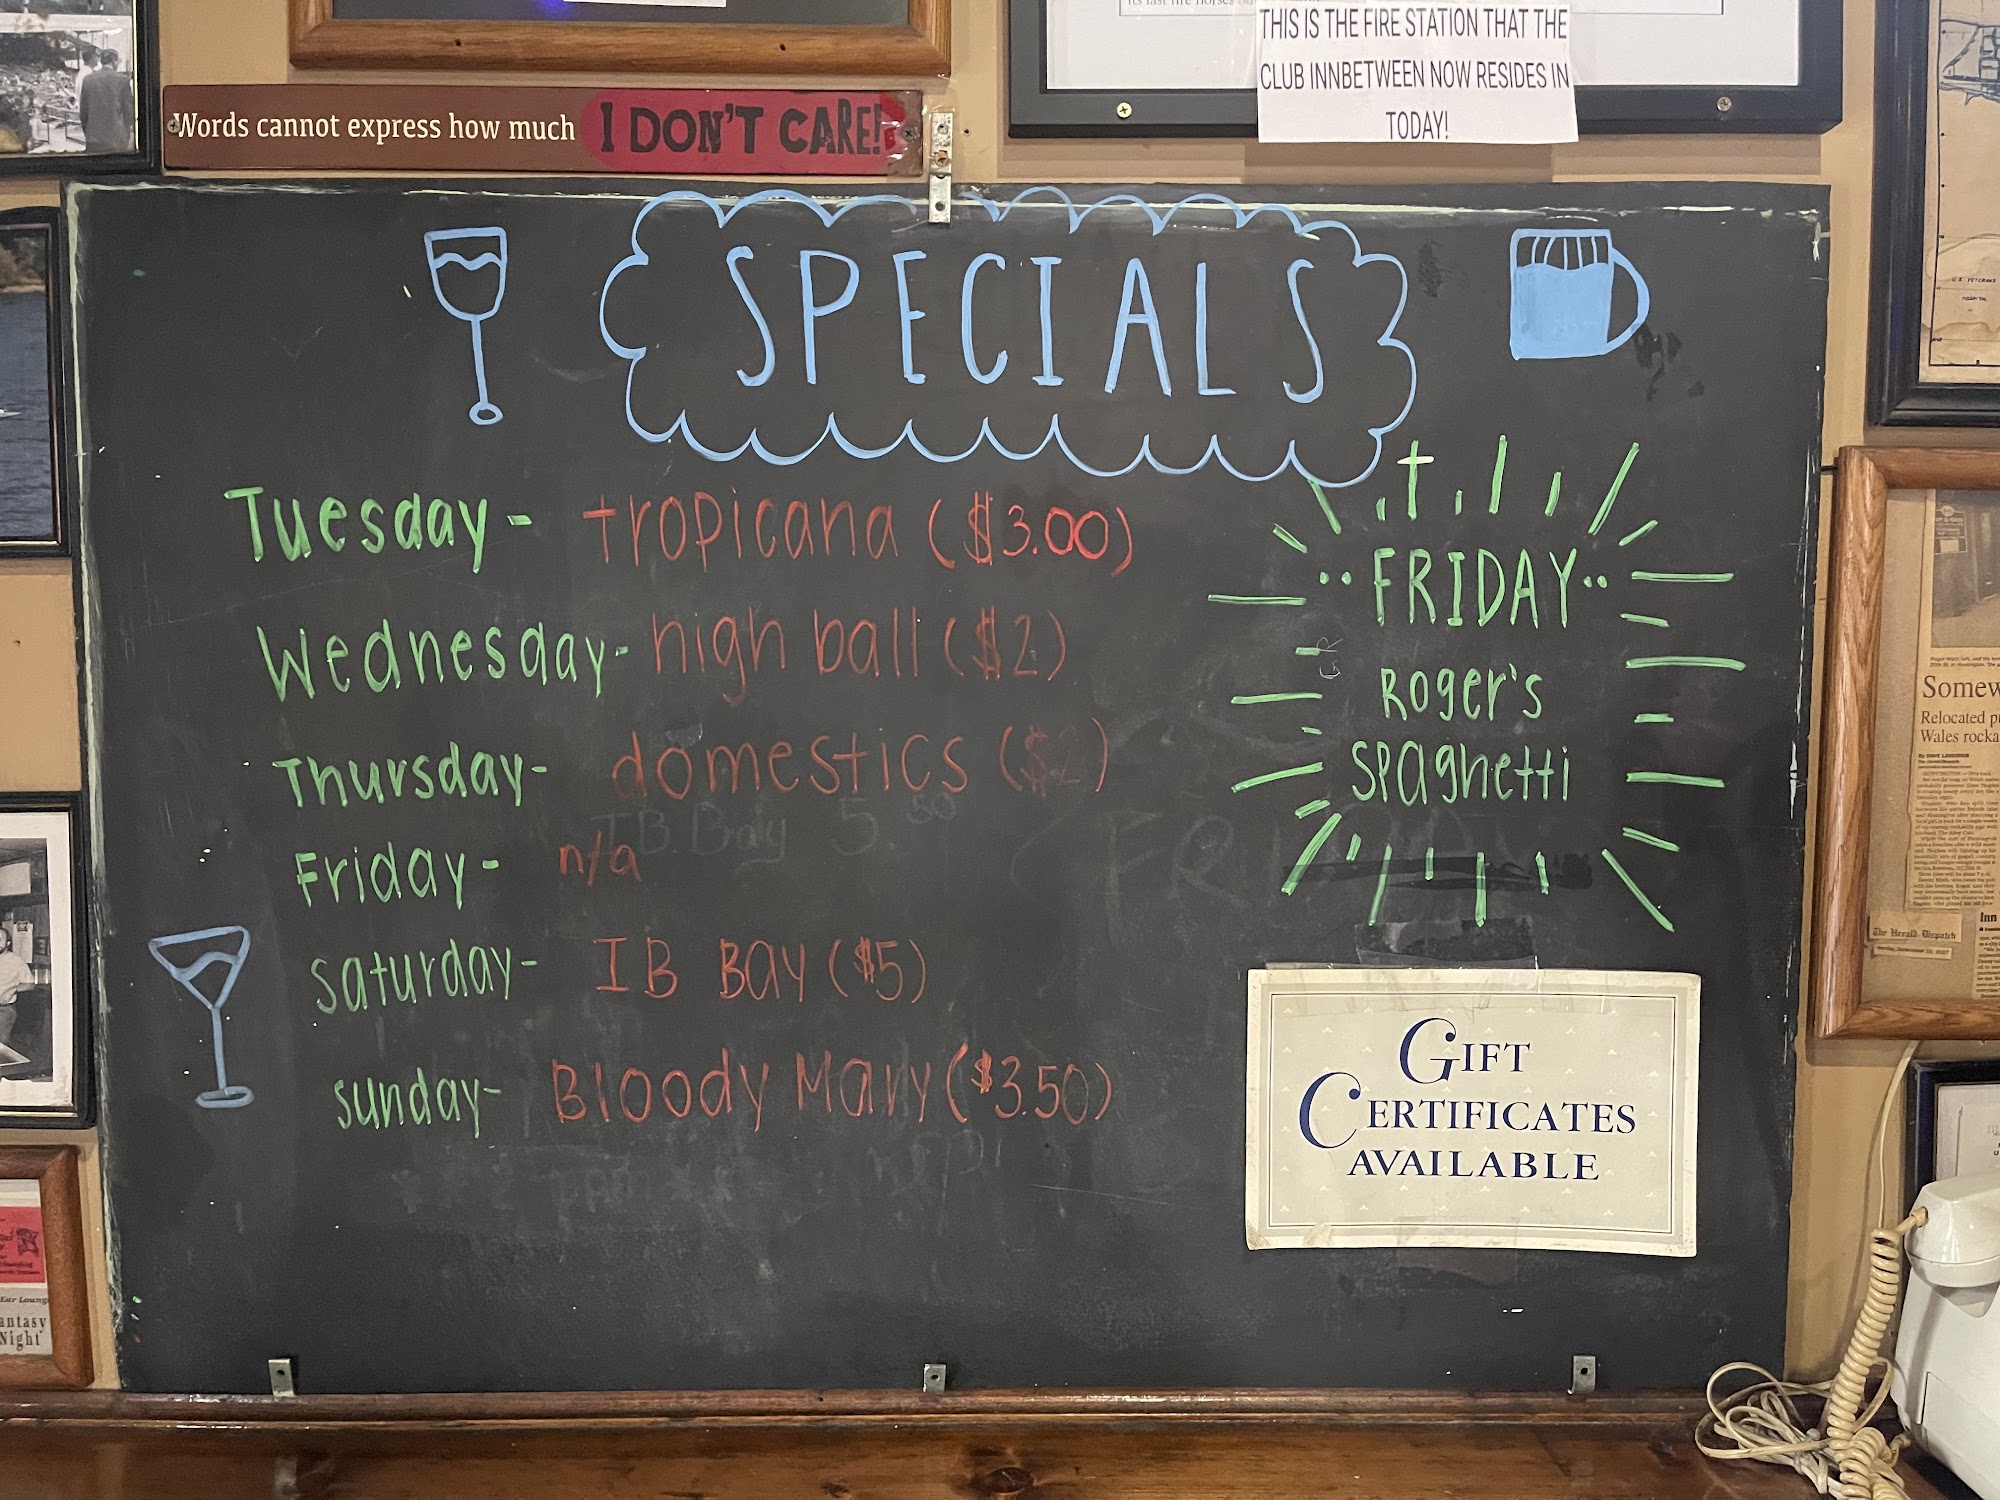 THIS IS THE FIRE STATION THAT THE
CLUB INNBETWEEN NOW RESIDES IN
TODAY!
Words cannot express how much I DON'T CARE!
SPECIALS
Tuesday- tropicana ($3.00)
Wednesday- high ball ($2)
Thursday- domestics ($2)
I.B. Bay 5.50
Friday- n/a
Saturday- IB Bay ($5)
Sunday- Bloody Mary ($3.50)
FRIDAY
Roger's
Spaghetti
GIFT
CERTIFICATES
AVAILABLE
U.S. VETERANS
HOSPITAL
Somew
Relocated p
Wales rocka
The Herald-Dispatch
Inn
Ear Loung
antasy
Night